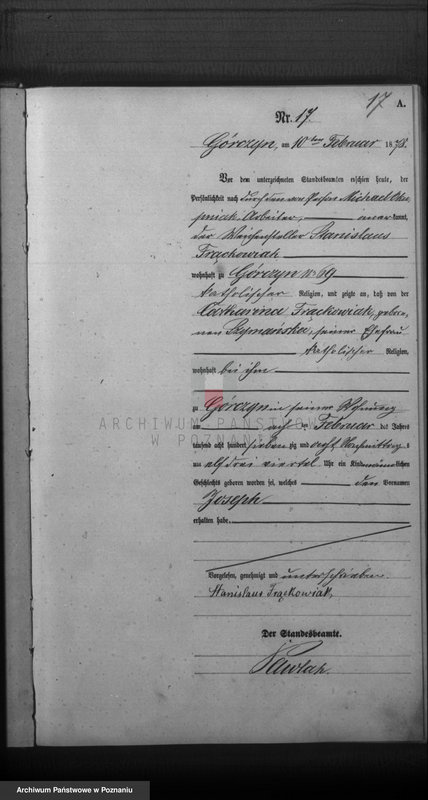 17 A.
Nr. 17.
Górczyn, am 10ten Februar 1878.
Vor dem unterzeichneten Standesbeamten erschien heute, der
Persönlichkeit nach durch den von Person Michael
Arbeiter, anerkannt,
der Weichensteller Stanislaus
Frąckowiak
wohnhaft zu Górczyn No 69
katholischer Religion, und zeigte an, daß von der
Catharina Frąckowiak, gebore-
nen Szymańska, seiner Ehefrau
katholischer Religion,
wohnhaft bei ihm
zu Górczyn in seiner Wohnung
am Februar des Jahres
tausend acht hundert siebenzig und acht Nachmittags
um elf drei viertel Uhr ein Kind männlichen
Geschlechts geboren worden sei, welches den Vornamen
Joseph
erhalten habe.
Vorgelesen, genehmigt und unterschrieben.
Stanislaus Frąckowiak,
Der Standesbeamte.
Pawlak.
ARCHIWUM PAŃSTWOWE
W POZNANIU
Archiwum Państwowe w Poznaniu